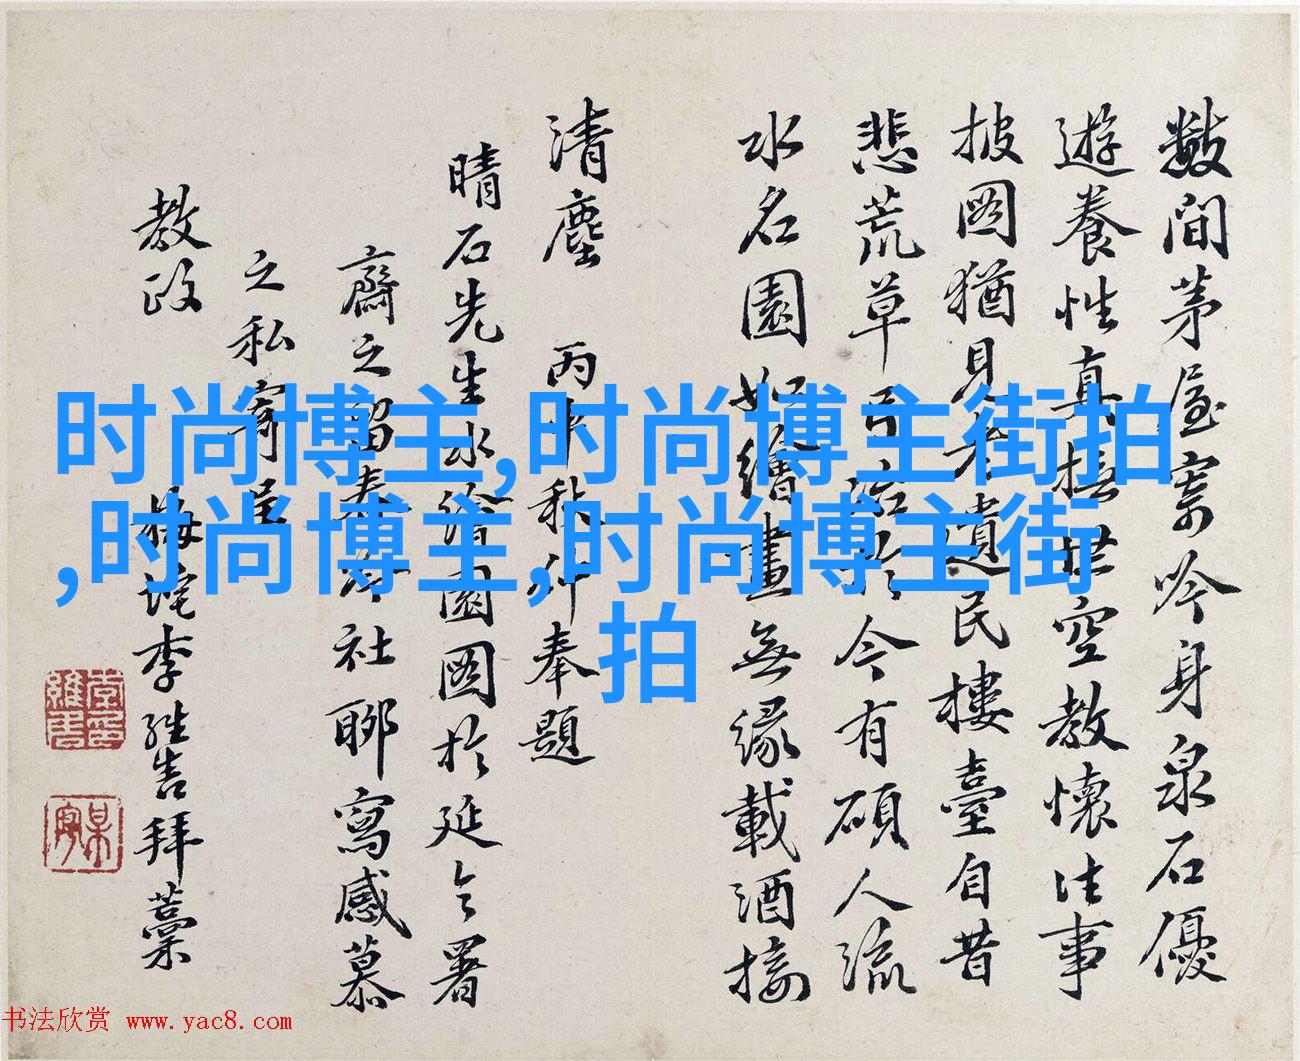 数间茅屋寄吟身泉石優
遊養性真撫世空教懷往事
披图猶見老遺民樓臺自昔
悲荒草今有碩人流
水名園如繪畫無緣載酒接
清塵 丙秋仲奉題
晴石先生水繪園圖於延令署
齋之留春社聊寫感慕
之私寄呈
教政 梅垞李維告拜藁
时尚博主,时尚博主街拍
,时尚博主,时尚博主街
拍
书法欣赏 www.yac8.com